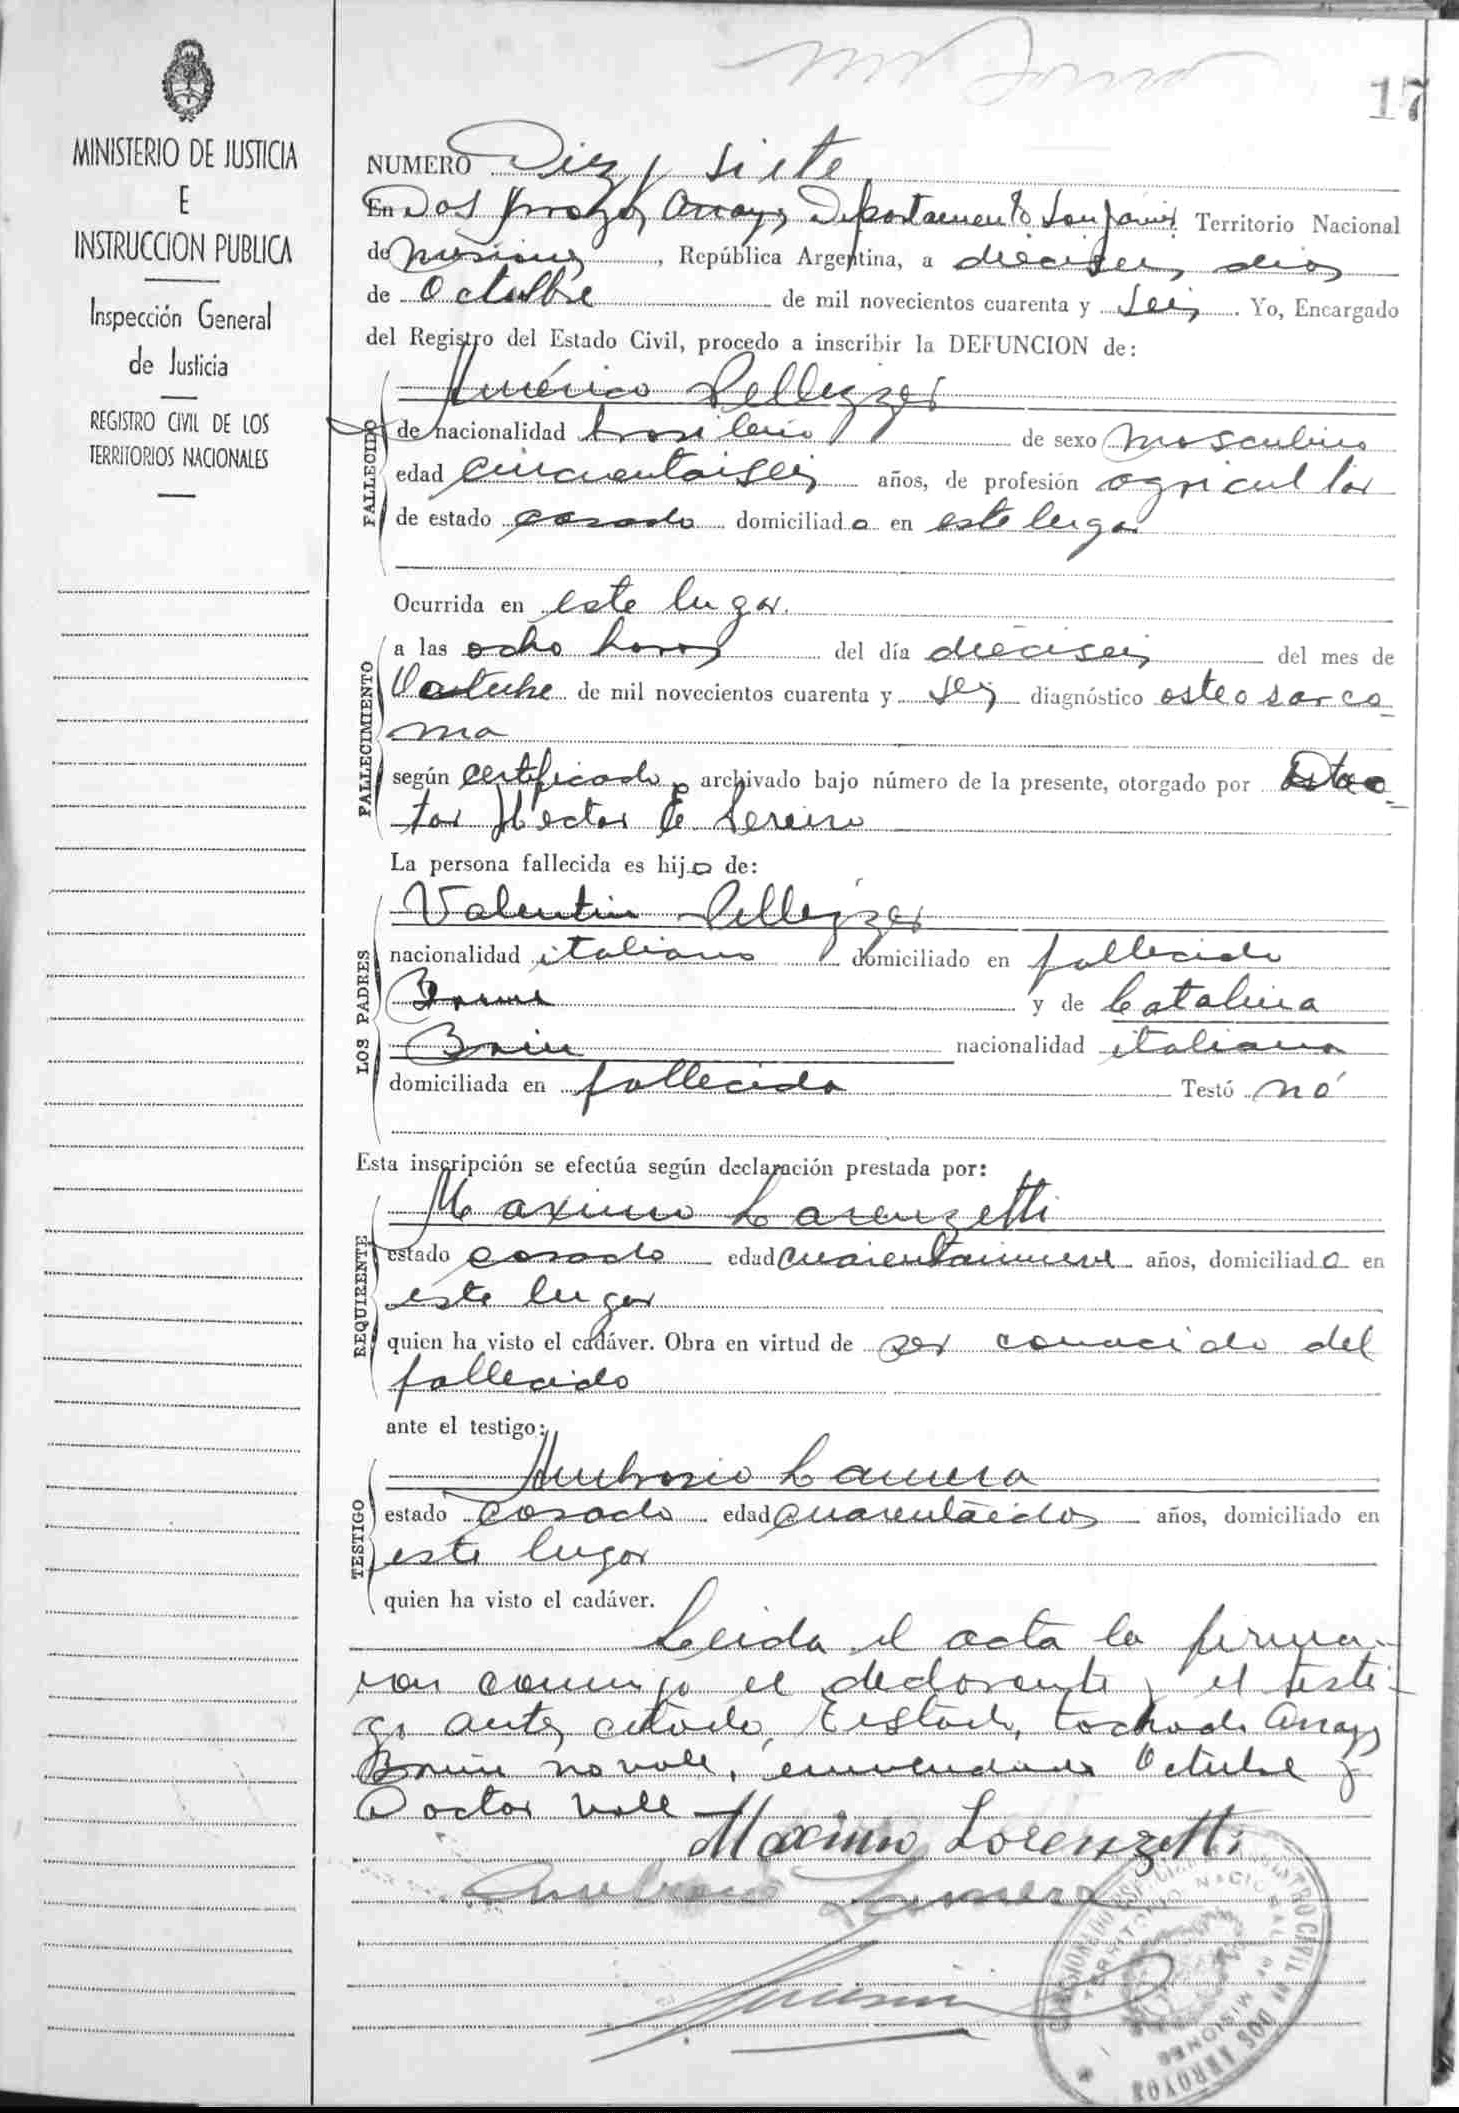 17
MINISTERIO DE JUSTICIA
E
INSTRUCCION PUBLICA
Inspección General
de Justicia
REGISTRO CIVIL DE LOS
TERRITORIOS NACIONALES
NUMERO Diez y siete
En Dos Arroyos Departamento San Javier Territorio Nacional
de Misiones, República Argentina, a dieciseis dias
de Octubre de mil novecientos cuarenta y seis. Yo, Encargado
del Registro del Estado Civil, procedo a inscribir la DEFUNCION de:
Américo Pellizzer
FALLECIDO
de nacionalidad brasilero de sexo masculino
edad cincuentaiseis años, de profesión agricultor
de estado casado domiciliado en este lugar
Ocurrida en este lugar.
FALLECIMIENTO
a las ocho horas del día dieciseis del mes de
Octubre de mil novecientos cuarenta y seis diagnóstico osteosarco-
ma
según certificado archivado bajo número de la presente, otorgado por Doc-
tor Hector E
La persona fallecida es hijo de:
LOS PADRES
Valentin Pellizzer
nacionalidad italiano domiciliado en fallecido
y de Catalina
nacionalidad italiana
domiciliada en fallecida Testó nó
Esta inscripción se efectúa según declaración prestada por:
REQUIRENTE
Maximo Lorenzetti
estado casado edad cuarentainueve años, domiciliado en
este lugar
quien ha visto el cadáver. Obra en virtud de ser conocido del
fallecido
ante el testigo:
TESTIGO
Ambrosio Lamera
estado casado edad cuarentaidos años, domiciliado en
este lugar
quien ha visto el cadáver.
Leida el acta la firma-
ron conmigo el declarante y el testi-
go antes citado, testado, Arroyos
no vale, enmendado Octubre y
Doctor vale
Maximo Lorenzetti
Ambrosio Lamera
REGISTRO CIVIL DE DOS ARROYOS
TERRITORIO NACIONAL DE MISIONES